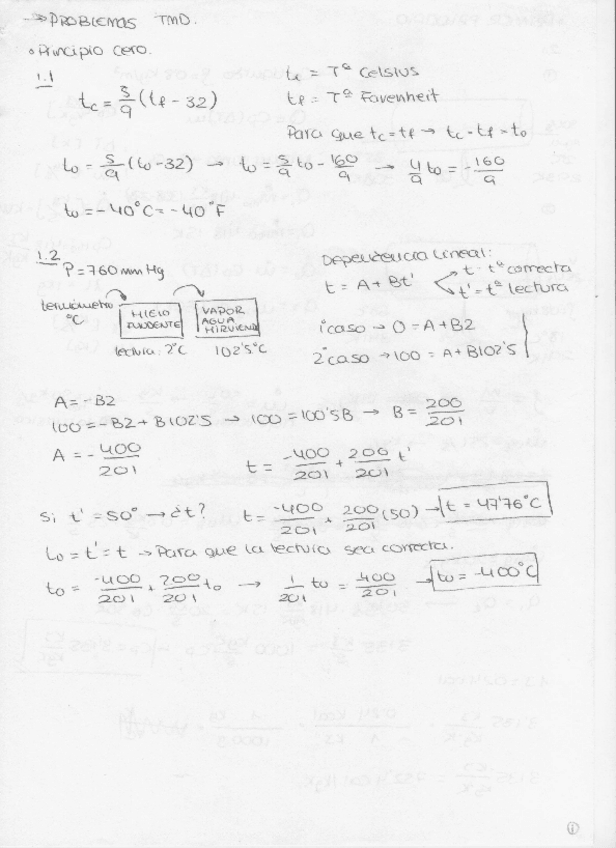 → PROBLEMAS TMD.
• Principio cero.
1.1
tc = 5/9 (tf - 32)
tc = Tª Celsius
tf = Tª Farenheit
Para que tc = tf → tc = tf = to
to = 5/9 (to - 32) → to = 5/9 to - 160/9 → 4/9 to = - 160/9
to = -40°C = -40°F
1.2
P = 760 mm Hg
termómetro °C
HIELO FUNDENTE
VAPOR AGUA HIRVIENDO
lectura: 2°C 102'5°C
Dependencia lineal:
t = A + Bt'
t = tª correcta
t' = tª lectura
1º caso → 0 = A + B2
2º caso → 100 = A + B102'5
A = -B2
100 = -B2 + B102'5 → 100 = 100'5B → B = 200/201
A = - 400/201
t = -400/201 + 200/201 t'
Si t' = 50° → ¿t? t = -400/201 + 200/201 (50) → t = 47'76°C
to = t' = t → Para que la lectura sea correcta.
to = -400/201 + 200/201 to → 1/201 to = -400/201 → to = -400°C
1